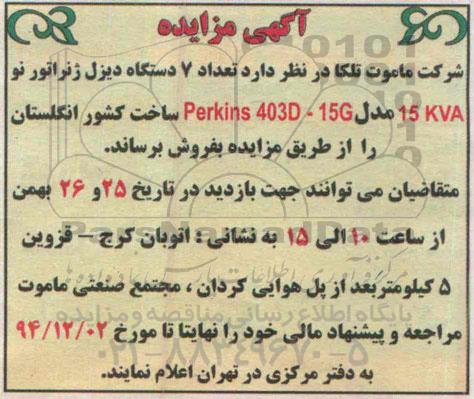 آگهی مزایده
شرکت ماموت تلکا در نظر دارد تعداد ۷ دستگاه دیزل ژنراتور نو
15 KVA مدل Perkins 403D - 15G ساخت کشور انگلستان
را از طریق مزایده بفروش برساند.
متقاضیان می توانند جهت بازدید در تاریخ ۲۵ و ۲۶ بهمن
از ساعت ۱۰ الی ۱۵ به نشانی : اتوبان کرج – قزوین
۵ کیلومتر بعد از پل هوایی کردان ، مجتمع صنعتی ماموت
مراجعه و پیشنهاد مالی خود را نهایتا تا مورخ ۹۴/۱۲/۰۲
به دفتر مرکزی در تهران اعلام نمایند.
ParsNamadData
پایگاه اطلاع رسانی مناقصه و مزایده
۰۲۱-۸۸۳۴۹۶۷۰-۵